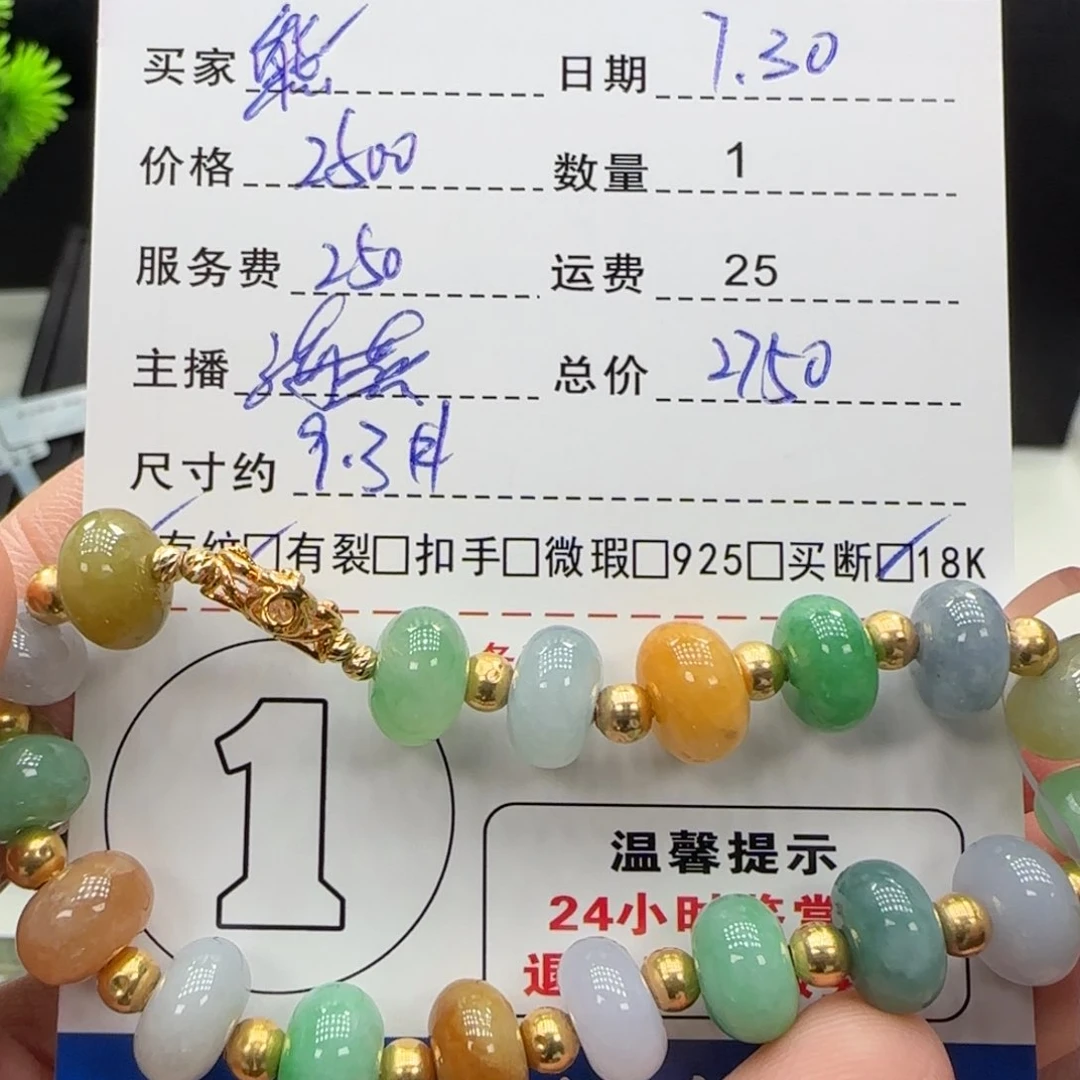 买家 熊 日期 7.30
价格 2500 数量 1
服务费 250 运费 25
主播 总价 2750
尺寸约 9.3
有纹□有裂□扣手□微瑕□925□买断□18K
1
温馨提示
24小时鉴赏
退